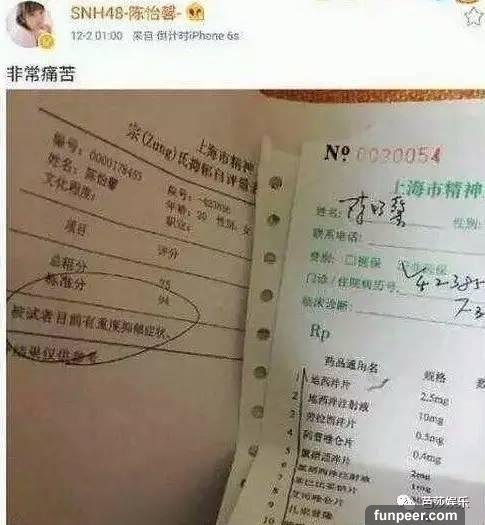 SNH48-陈怡馨-
12-2 01:00 来自 倒计时iPhone 6s
非常痛苦
上海市精神
宗(Zung)氏抑郁自评量表
编号: 0000179455
姓名: 陈怡馨
文化程度:
年龄: 20 性别: 女
职业:
项目 评分
总粗分 75
标准分 94
被试者目前有重度抑郁症状。
结果仅供参考
Nº 0030054
上海市精神
姓名: 性别:
联系电话:
费别:
门诊/住院病历号:
临床诊断:
Rp
药品通用名 规格 数
1 地西泮片 2.5mg
2 地西泮注射液 10mg
3 劳拉西泮片 0.5mg
4 阿普唑仑片 0.4mg
5 氯硝西泮片 2mg
6
7
8
9
10
芭莎娱乐
funpeer.com